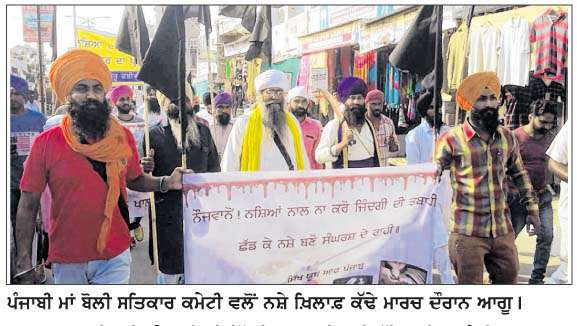 ਨਸ਼ਿਆ
ਖਾਲ
ਨੌਜਵਾਨੋਂ! ਨਸ਼ਿਆਂ ਨਾਲ ਨਾ ਕਰੋ ਜ਼ਿੰਦਗੀ ਦੀ ਤਬਾਹੀ
ਛੱਡ ਕੇ ਨਸ਼ੇ ਬਣੋ ਸੰਘਰਸ਼ ਦੇ ਰਾਹੀ॥
ਸਿੱਖ ਯੂਥ ਆਫ ਪੰਜਾਬ
ਪੰਜਾਬੀ ਮਾਂ ਬੋਲੀ ਸਤਿਕਾਰ ਕਮੇਟੀ ਵਲੋਂ ਨਸ਼ੇ ਖ਼ਿਲਾਫ਼ ਕੱਢੇ ਮਾਰਚ ਦੌਰਾਨ ਆਗੂ।